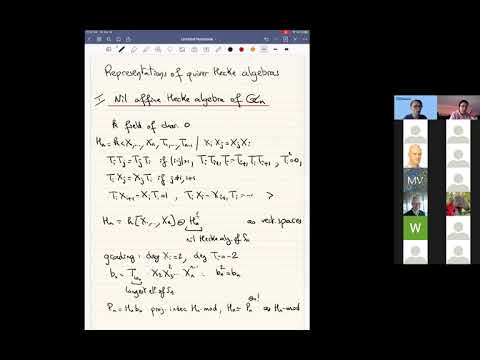 Representations of quiver Hecke algebras
I Nil affine Hecke algebra of GLn
k field of char. 0
Hn = k<X1,...,Xn, T1,...,Tn-1 | XiXj = XjXi
TiTj = TjTi if |i-j|>1, TiTi+1Ti = Ti+1TiTi+1, Ti²=0,
TiXj = XjTi if j≠i,i+1
TiXi+1 - XiTi = 1, TiXi - Xi+1Ti = -1 >
Hn = k[X1,...,Xn] ⊗ as vect. spaces
nil Hecke alg. of Sn
grading: deg Xi = 2, deg Ti = -2
longest elt of Sn
Pn = Hn bn proj. indec Hn-mod, as Hn-mod
MV
W